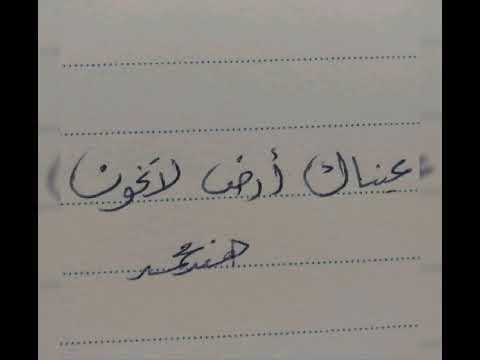 (عيناك أرض لا تخون)
هند محمد